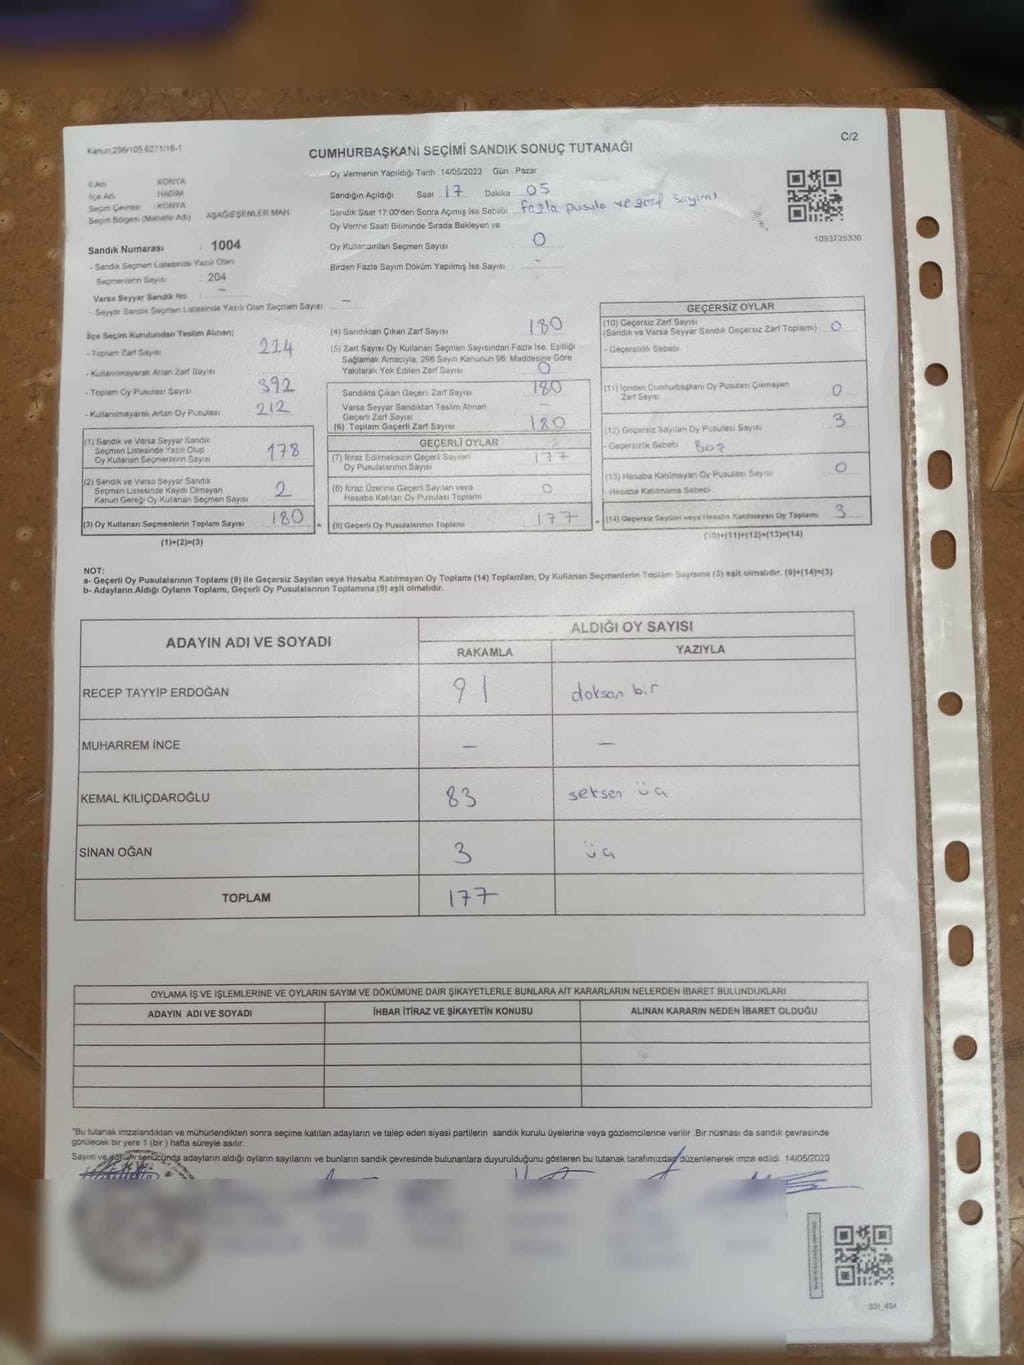 Kanun:298/105,6271/18-1
C/2
CUMHURBAŞKANI SEÇİMİ SANDIK SONUÇ TUTANAĞI
İl Adı : KONYA
İlçe Adı : HADİM
Seçim Çevresi : KONYA
Seçim Bölgesi (Mahalle Adı) : AŞAĞIEŞENLER MAH.
Sandık Numarası : 1004
- Sandık Seçmen Listesinde Yazılı Olan
Seçmenlerin Sayısı : 204
Varsa Seyyar Sandık No : –
- Seyyar Sandık Seçmen Listesinde Yazılı Olan Seçmen Sayısı: –
Oy Vermenin Yapıldığı Tarih :14/05/2023 Gün : Pazar
Sandığın Açıldığı Saat : 17 Dakika : 05
Sandık Saat 17:00'den Sonra Açılmış İse Sebebi: fazla pusula ve zarf sayımı
Oy Verme Saati Bitiminde Sırada Bekleyen ve
Oy Kullandırılan Seçmen Sayısı : 0
Birden Fazla Sayım Döküm Yapılmış İse Sayısı : –
1093725336
İlçe Seçim Kurulundan Teslim Alınan;
- Toplam Zarf Sayısı : 224
- Kullanılmayarak Artan Zarf Sayısı :
- Toplam Oy Pusulası Sayısı : 392
- Kullanılmayarak Artan Oy Pusulası : 212
(1) Sandık ve Varsa Seyyar Sandık
Seçmen Listesinde Yazılı Olup
Oy Kullanan Seçmenlerin Sayısı : 178
(2) Sandık ve Varsa Seyyar Sandık
Seçmen Listesinde Kayıtlı Olmayan
Kanun Gereği Oy Kullanan Seçmen Sayısı : 2
(3) Oy Kullanan Seçmenlerin Toplam Sayısı : 180
(1)+(2)=(3)
(4) Sandıktan Çıkan Zarf Sayısı : 180
(5) Zarf Sayısı Oy Kullanan Seçmen Sayısından Fazla İse, Eşitliği
Sağlamak Amacıyla, 298 Sayılı Kanunun 98. Maddesine Göre
Yakılarak Yok Edilen Zarf Sayısı : 0
Sandıkta Çıkan Geçerli Zarf Sayısı : 180
Varsa Seyyar Sandıktan Teslim Alınan
Geçerli Zarf Sayısı : –
(6) Toplam Geçerli Zarf Sayısı : 180
GEÇERLİ OYLAR
(7) İtiraz Edilmeksizin Geçerli Sayılan
Oy Pusulalarının Sayısı : 177
(8) İtiraz Üzerine Geçerli Sayılan veya
Hesaba Katılan Oy Pusulası Toplamı : 0
(9) Geçerli Oy Pusulalarının Toplamı : 177
GEÇERSİZ OYLAR
(10) Geçersiz Zarf Sayısı
(Sandık ve Varsa Seyyar Sandık Geçersiz Zarf Toplamı) : 0
- Geçersizlik Sebebi :
(11) İçinden Cumhurbaşkanı Oy Pusulası Çıkmayan
Zarf Sayısı : 0
(12) Geçersiz Sayılan Oy Pusulası Sayısı : 3
- Geçersizlik Sebebi :
(13) Hesaba Katılmayan Oy Pusulası Sayısı : 0
- Hesaba Katılmama Sebebi :
(14) Geçersiz Sayılan veya Hesaba Katılmayan Oy Toplamı : 3
(10)+(11)+(12)+(13)=(14)
NOT:
a- Geçerli Oy Pusulalarının Toplamı (9) ile Geçersiz Sayılan veya Hesaba Katılmayan Oy Toplamı (14) Toplamları, Oy Kullanan Seçmenlerin Toplam Sayısına (3) eşit olmalıdır. (9)+(14)=(3)
b- Adayların Aldığı Oyların Toplamı, Geçerli Oy Pusulalarının Toplamına (9) eşit olmalıdır.
ADAYIN ADI VE SOYADI
ALDIĞI OY SAYISI
RAKAMLA YAZIYLA
RECEP TAYYİP ERDOĞAN 91 doksan bir
MUHARREM İNCE – –
KEMAL KILIÇDAROĞLU 83 seksen üç
SİNAN OĞAN 3 üç
TOPLAM 177
OYLAMA İŞ VE İŞLEMLERİNE VE OYLARIN SAYIM VE DÖKÜMÜNE DAİR ŞİKAYETLERLE BUNLARA AİT KARARLARIN NELERDEN İBARET BULUNDUKLARI
ADAYIN ADI VE SOYADI İHBAR İTİRAZ VE ŞİKAYETİN KONUSU ALINAN KARARIN NEDEN İBARET OLDUĞU
"Bu tutanak imzalandıktan ve mühürlendikten sonra seçime katılan adayların ve talep eden siyasi partilerin sandık kurulu üyelerine veya gözlemcilerine verilir .Bir nüshası da sandık çevresinde
görülecek bir yere 1 (bir) hafta süreyle asılır.
Sayım ve döküm sonucunda adayların aldığı oyların sayılarını ve bunların sandık çevresinde bulunanlara duyurulduğunu gösteren bu tutanak tarafımızdan düzenlenerek imza edildi. 14/05/2023